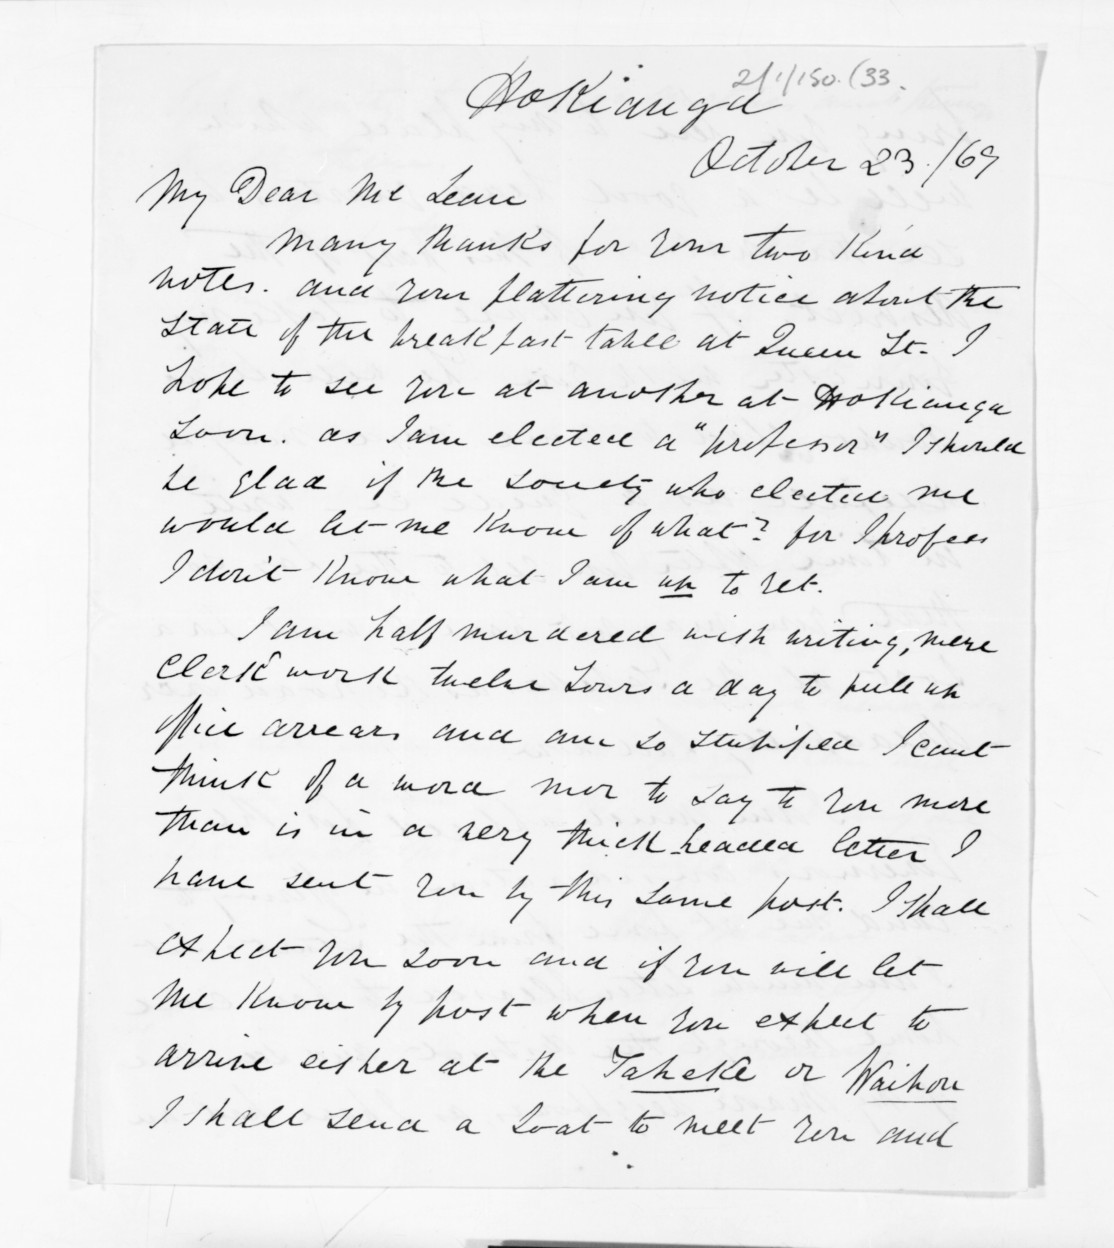 2/1/150. (33.
Hokianga
October 23./69
My Dear Mc Lean
Many thanks for your two kind
notes. and your flattering notice about the
state of the breakfast table at Queen St. I
hope to see you at another at Hokianga
soon. as I am elected a "professor" I should
be glad if the society who elected me
would let me know of what? for I profess
I don't know what I am up to yet.
I am half murdered with writing, mere
Clerk work twelve hours a day to pull up
office arrears and am so stupified I cant
think of a word mor to say to you more
than is in a very thick headed letter I
have sent you by this same post. I shall
expect you soon and if you will let
me know by post when you expect to
arrive either at the Taheke or Waihou
I shall send a boat to meet you and